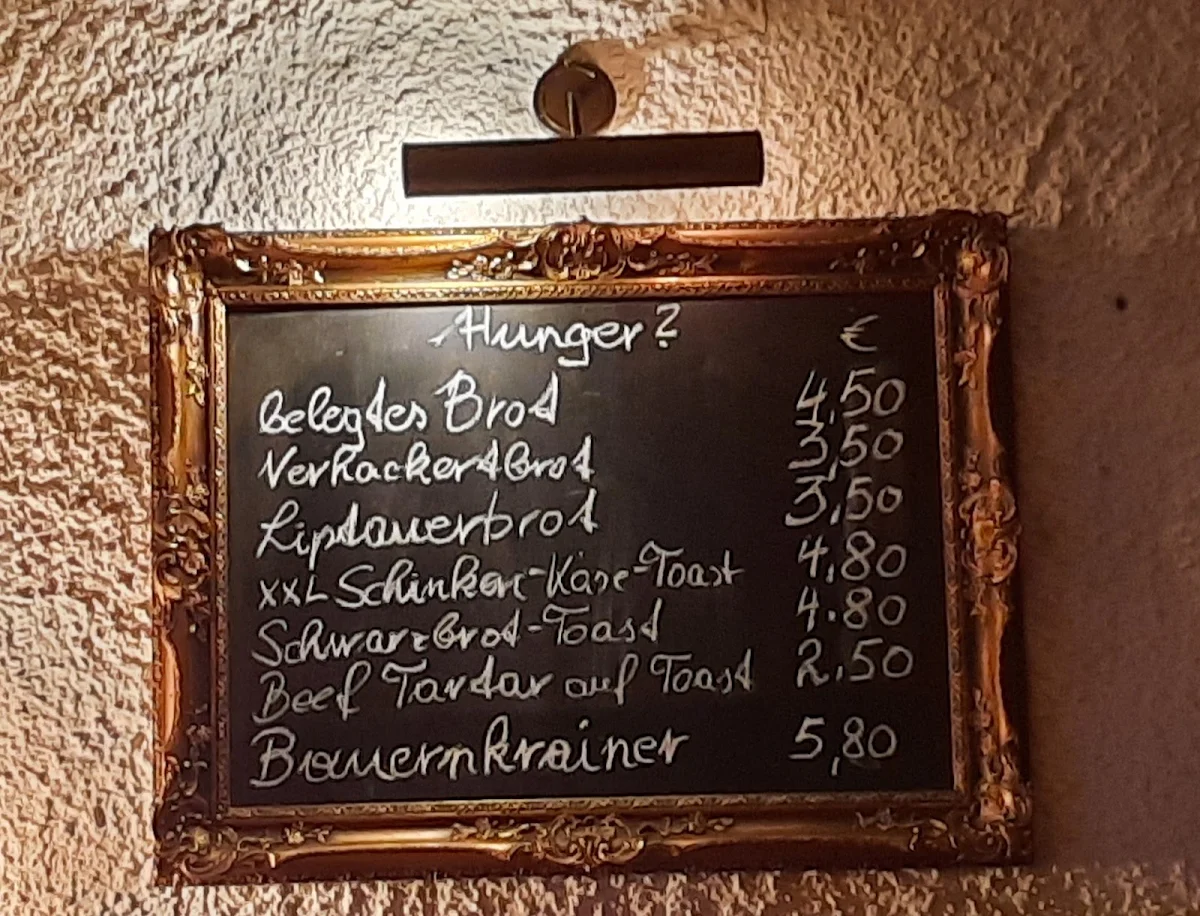 Hunger? €
belegtes Brot 4,50
Verhackertbrot 3,50
Liptauerbrot 3,50
XXL Schinken-Käse-Toast 4,80
Schwarzbrot-Toast 4.80
Beef Tartar auf Toast 2,50
Bauernkrainer 5,80